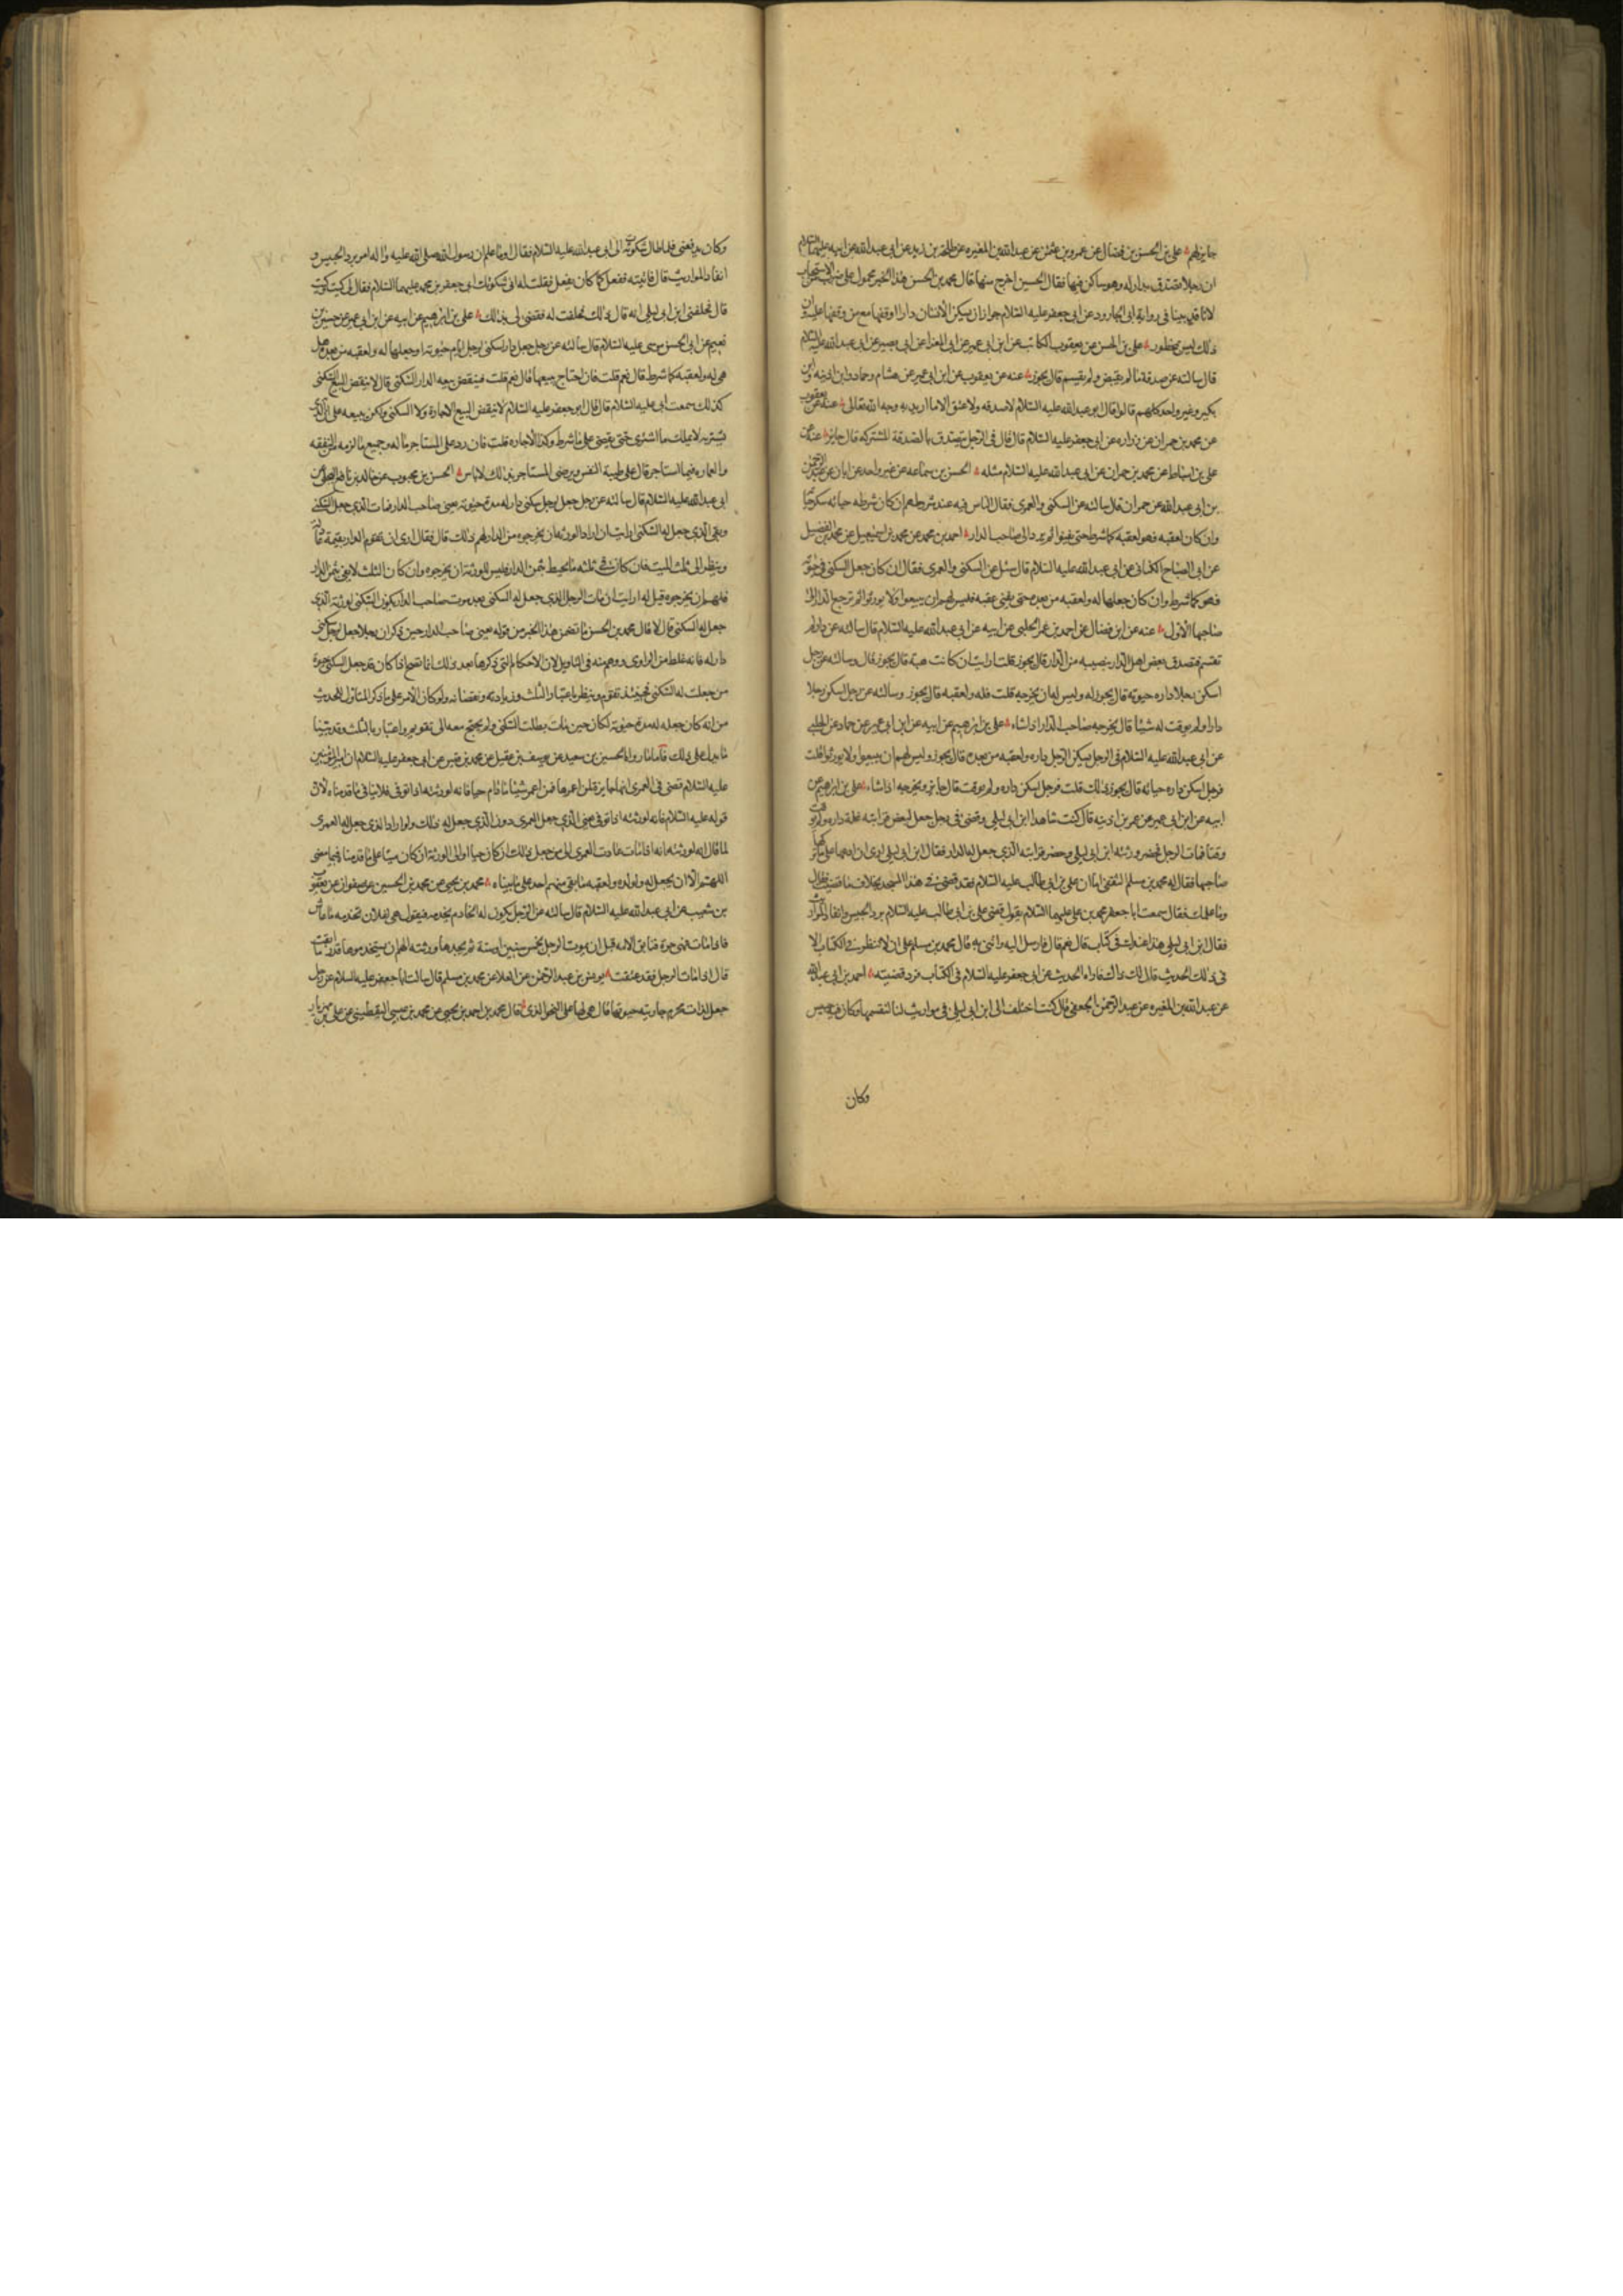 جايز لهم علي بن الحسن بن فضال عن عمرو بن عثمن عن عبد الله بن المغيره عن طلحة بن زيد عن ابي عبد الله عن ابيه عليهما السلام
ان رجلا تصدق بدار له وهو ساكن فيها فقال الحسين اخرج منها قال محمد بن الحسن هذا الخبر محمول على ضرب من الاستحباب
لانا قد بينا في رواية ابي الجارود عن ابي جعفر عليه السلام جواز ان يسكن الانسان دارا اوقفها مع من وقفها عليه وان
ذلك ليس بمحظور علي بن الحسن عن يعقوب الكاتب عن ابن ابي عمير عن ابي المغرا عن ابي بصير عن ابي عبد الله عليه السلام
قال سالته عن صدقة ما لم يقبض ولم يقسم قال يجوز عنه عن يعقوب عن ابن ابي عمير عن هشام وحماد وابن اذينه وابن
بكير وغير واحد كلهم قالوا قال ابو عبد الله عليه السلام لا صدقه ولا عتق الا ما اريد به وجه الله تعالى عنه عن يعقوب
عن محمد بن حمران عن زراره عن ابي جعفر عليه السلام قال قال في الرجل يتصدق بالصدقة المشتركه قال جايز عنه عن
علي بن اسباط عن محمد بن حمران عن ابي عبد الله عليه السلام مثله الحسن بن سماعه عن غير واحد عن ابان عن عبد الرحمن
بن ابي عبد الله عن حمران قال سالته عن السكنى والعمرى فقال الناس فيه عند شروطهم ان كان شرطه حياته سكن حياته
وان كان لعقبه فهو لعقبه كما شرط حتى يفنوا ثم يرد الى صاحب الدار احمد بن محمد عن محمد بن اسمعيل عن محمد بن الفضيل
عن ابي الصباح الكناني عن ابي عبد الله عليه السلام قال سئل عن السكنى والعمرى فقال ان كان جعل السكنى في حيوته
فهو كما شرط وان كان جعلها له ولعقبه من بعده حتى يفنى عقبه فليس لهم ان يبيعوا ولا يورثوا ثم ترجع الدار الى
صاحبها الاول عنه عن ابن فضال عن احمد بن عمر الحلبي عن ابيه عن ابي عبد الله عليه السلام قال سالته عن دار لم
تقسم فتصدق بعض اهل الدار بنصيبه من الدار قال يجوز قلت ارايت ان كانت هبة قال يجوز قال وسالته عن رجل
اسكن رجلا داره حيوته قال يجوز له وليس له ان يخرجه قلت فله ولعقبه قال يجوز وسالته عن رجل اسكن رجلا
دارا ولم يوقت له شيئا قال يخرجه صاحب الدار اذا شاء علي بن ابرهيم عن ابيه عن ابن ابي عمير عن حماد عن الحلبي
عن ابي عبد الله عليه السلام في الرجل يسكن الرجل داره ولعقبه من بعده قال يجوز وليس لهم ان يبيعوا ولا يورثوا قلت
فرجل اسكن داره حياته قال يجوز ذلك قلت فرجل اسكن داره ولم يوقت قال جايز ويخرجه اذا شاء علي بن ابرهيم عن
ابيه عن ابن ابي عمير عن عمر بن اذينه قال كنت شاهدا ابن ابي ليلى وقضى في رجل جعل لبعض قرابته غلة داره ولم يوقت
وقتا فمات الرجل فحضر ورثته ابن ابي ليلى وحضر قرابته الذي جعل له الدار فقال ابن ابي ليلى ارى ان ادعها على ما تركها
صاحبها فقال له محمد بن مسلم الثقفي اما ان علي بن ابي طالب عليه السلام قد قضى في هذا المسجد بخلاف ما قضيت فقال
وما علمك فقال سمعت ابا جعفر محمد بن علي عليهما السلام يقول قضى علي بن ابي طالب عليه السلام برد الحبيس وانفاذ المواريث
فقال ابن ابي ليلى هذا عندك في كتاب قال نعم قال فارسل اليه وائتني به قال محمد بن مسلم على ان لا تنظر في الكتاب الا
في ذلك الحديث قال لك ذاك فاراه الحديث عن ابي جعفر عليه السلام في الكتاب فرد قضيته احمد بن ابي عبد الله
عن عبد الله بن المغيره عن عبد الرحمن الجعفي قال كنت اختلف الى ابن ابي ليلى في مواريث لنا لنقسمها وكان فيه حبيس
وكان
وكان يدافعني فلما طال شكوته الى ابي عبد الله عليه السلام فقال اوما علم ان رسول الله صلى الله عليه واله امر برد الحبيس و
انفاذ المواريث قال فاتيته ففعل كما كان يفعل فقلت له اني شكوتك الى جعفر بن محمد عليهما السلام فقال لي كيت وكيت
قال فحلفني ابن ابي ليلى انه قال ذلك فحلفت له فقضى لي بذلك علي بن ابرهيم عن ابيه عن ابن ابي عمير عن حسين بن
نعيم عن ابي الحسن موسى عليه السلام قال سالته عن رجل جعل دار سكنى لرجل ايام حيوته او جعلها له ولعقبه من بعده هل
هي له ولعقبه كما شرط قال نعم قلت فان احتاج يبيعها قال نعم قلت فينقض بيعه الدار السكنى قال لا ينقض البيع السكنى
كذلك سمعت ابي عليه السلام قال قال ابو جعفر عليه السلام لا ينقض البيع الاجارة ولا السكنى ولكن يبيعه على ان الذي
يشتريه لا يملك ما اشترى حتى يقضي على ما شرط وكذا الاجاره قلت فان رد على المستاجر ماله وجميع ما لزمه من النفقه
والعماره فيما استاجر قال على طيبة النفس ويرضى المستاجر بذلك لا باس الحسن بن محبوب عن خالد بن نافع البجلي عن
ابي عبد الله عليه السلام قال سالته عن رجل جعل لرجل سكنى دار له مدة حيوته يعني صاحب الدار فمات الذي جعل السكنى
وبقي الذي جعل له السكنى ارايت ان اراد الورثه ان يخرجوه من الدار لهم ذلك قال فقال ارى ان تقوم الدار بقيمة عادلة
وينظر الى ثلث الميت فان كان في ثلثه ما يحيط بثمن الدار فليس للورثة ان يخرجوه وان كان الثلث لا يحيط بثمن الدار
فلهم ان يخرجوه قيل له ارايت ان مات الرجل الذي جعل له السكنى بعد موت صاحب الدار يكون السكنى لورثة الذي
جعل له السكنى قال لا قال محمد بن الحسن ما تضمن هذا الخبر من قوله يعني صاحب الدار حين ذكر ان رجلا جعل لرجل سكنى
دار له فانه غلط من الراوي ووهم منه في التاويل لان الاحكام التي ذكرها بعد ذلك انما تصح اذا كان قد جعل السكنى حيوة
من جعلت له السكنى فحينئذ تقوم وينظر باعتبار الثلث وزيادته ونقصانه ولو كان الامر على ما ذكر المتاول للحديث
من انه كان جعله له مدة حيوته لكان حين مات بطلت السكنى ولم يحتج معه الى تقويم واعتباره بالثلث وقد بينا
ما يدل على ذلك فاما ما رواه الحسين بن سعيد عن يوسف بن عقيل عن محمد بن قيس عن ابي جعفر عليه السلام ان امير المؤمنين
عليه السلام قضى في العمرى انها جايزة لمن اعمرها فمن اعمر شيئا ما دام حيا فانه لورثته اذا توفي فلا ينافي ما قدمناه لان
قوله عليه السلام فانه لورثته اذا توفي يعني الذي جعل العمرى دون الذي جعل له ذلك ولو اراد الذي جعل له العمرى
لما قال انه لورثته لانه اذا مات عادت العمرى الى من جعل ذلك ان كان حيا او الى الورثة ان كان ميتا على ما قدمنا فيما مضى
اللهم الا ان يجعل له ولولده ولعقبه ما بقي منهم احد على ما بيناه محمد بن يحيى عن محمد بن الحسين عن صفوان عن يعقوب
بن شعيب عن ابي عبد الله عليه السلام قال سالته عن الرجل يكون له الخادم يخدمه فيقول هي لفلان تخدمه ما عاش
فاذا مات فهي حرة فتابق الامه قبل ان يموت الرجل بخمس سنين او سنة ثم يجدها ورثته الهم ان يستخدموها قدر ما ابقت
قال اذا مات الرجل فقد عتقت يونس بن عبد الرحمن عن العلا عن محمد بن مسلم قال سالت ابا جعفر عليه السلام عن رجل
جعل لذات محرم جاريته حيوتها قال هي لها على النحو الذي قال محمد بن احمد بن يحيى عن محمد بن عيسى اليقطيني عن علي بن مهزيار